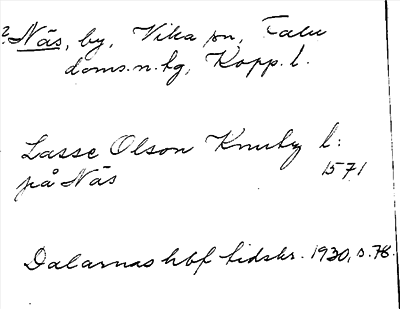 ? Näs, by, Vika sn, Falu
doms.n.hg, Kopp. l.
Lasse Olson Knuby l:
på Näs 1571
Dalarnas hbf tidskr. 1930, s. 78.